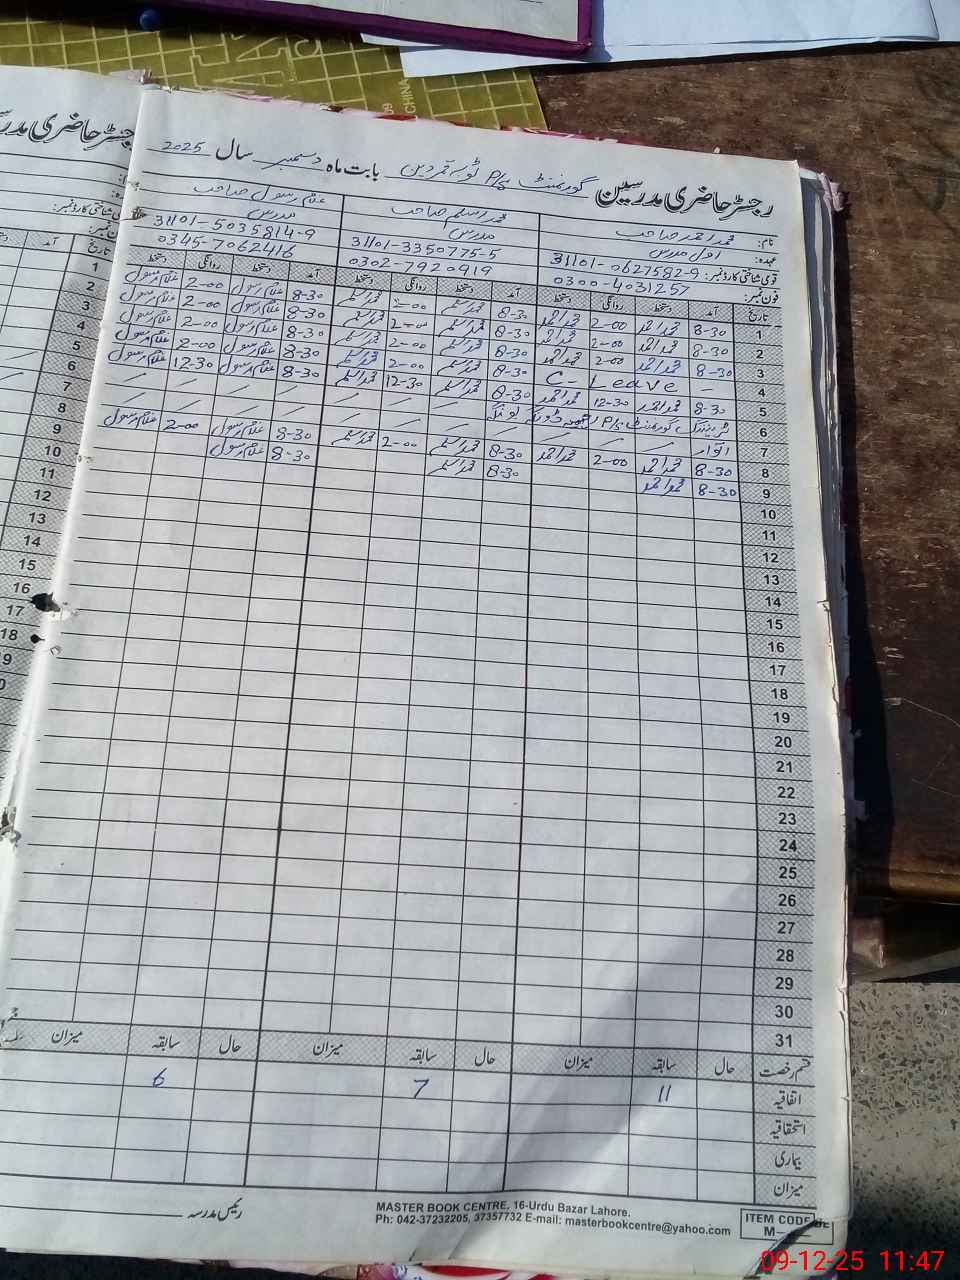 رجسٹر حاضری مدرسین گورنمنٹ P/S ٹوبہ قمر دین بابت ماہ دسمبر سال 2025
نام: محمد احمد صاحب محمد اسلم صاحب غلام رسول صاحب
عہدہ: اول مدرس مدرس مدرس
قومی شناختی کارڈ نمبر: 31101-0627582-9 31101-3350775-5 31101-5035814-9
فون نمبر: 0300-4031257 0302-7920919 0345-7062416
تاریخ آمد دستخط روانگی دستخط آمد دستخط روانگی دستخط آمد دستخط روانگی دستخط
1 8-30 محمد احمد 2-00 محمد احمد 8-30 محمد اسلم 2-00 محمد اسلم 8-30 غلام رسول 2-00 غلام رسول
2 8-30 محمد احمد 2-00 محمد احمد 8-30 محمد اسلم 2-00 محمد اسلم 8-30 غلام رسول 2-00 غلام رسول
3 8-30 محمد احمد 2-00 محمد احمد 8-30 محمد اسلم 2-00 محمد اسلم 8-30 غلام رسول 2-00 غلام رسول
4 – C- Leave 8-30 محمد اسلم 2-00 محمد اسلم 8-30 غلام رسول 2-00 غلام رسول
5 8-30 محمد احمد 12-30 محمد احمد 8-30 محمد اسلم 12-30 محمد اسلم 8-30 غلام رسول 12-30 غلام رسول
6 ٹریننگ گورنمنٹ P/S
7 اتوار
8 8-30 محمد احمد 2-00 محمد احمد 8-30 محمد اسلم 2-00 محمد اسلم 8-30 غلام رسول 2-00 غلام رسول
9 8-30 محمد احمد 8-30 محمد اسلم 8-30 غلام رسول
10
11
12
13
14
15
16
17
18
19
20
21
22
23
24
25
26
27
28
29
30
31
قسم رخصت حال سابقہ میزان حال سابقہ میزان حال سابقہ میزان
اتفاقیہ 11 7 6
استحقاقیہ
بیماری
میزان
رئیس مدرسہ
MASTER BOOK CENTRE, 16-Urdu Bazar Lahore.
Ph: 042-37232205, 37357732 E-mail: masterbookcentre@yahoo.com
ITEM CODE
M-
رجسٹر حاضری
تاریخ
آمد
1
2
3
4
5
6
7
8
9
10
11
12
13
14
15
16
17
18
CHINA
09-12-25 11:47